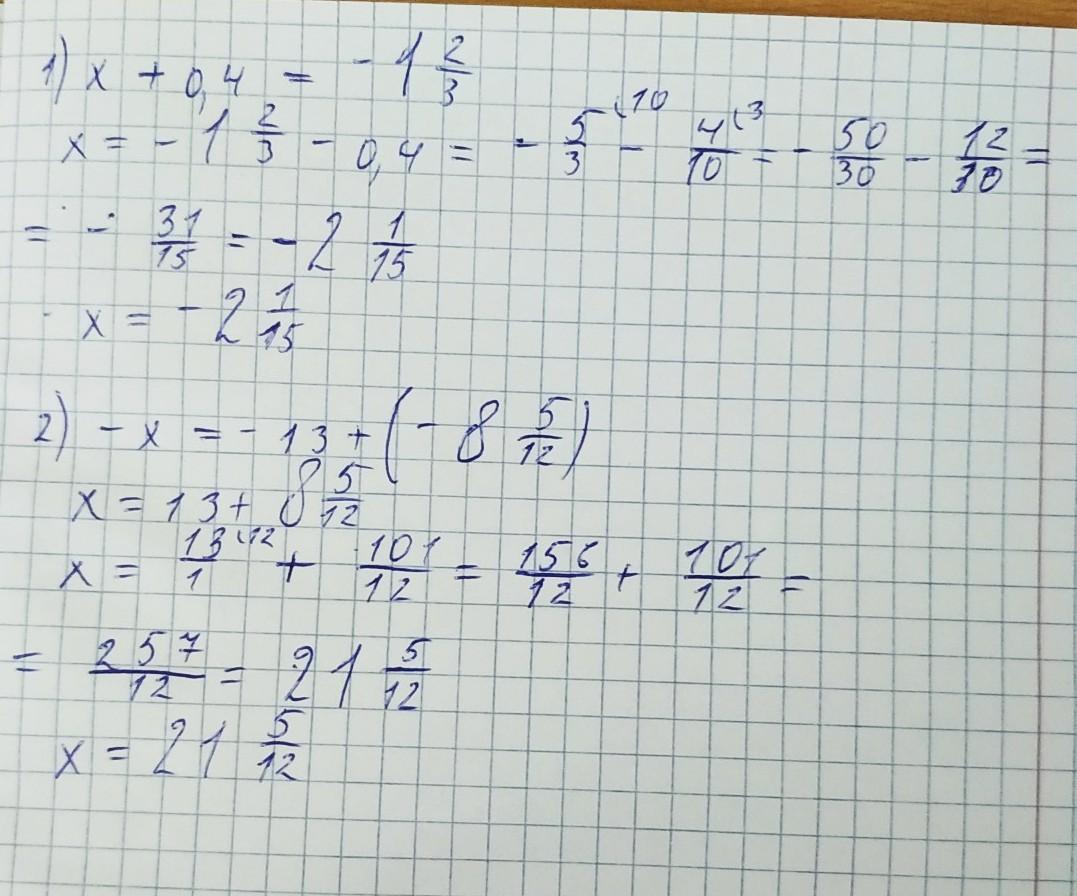 1) x + 0,4 = - 1 2/3
x = - 1 2/3 - 0,4 = - 5/3 \10 - 4/10 \3 = - 50/30 - 12/30 =
= - 31/15 = - 2 1/15
x = - 2 1/15
2) - x = - 13 + (- 8 5/12)
x = 13 + 8 5/12
x = 13/1 \12 + 101/12 = 156/12 + 101/12 =
= 257/12 = 21 5/12
x = 21 5/12